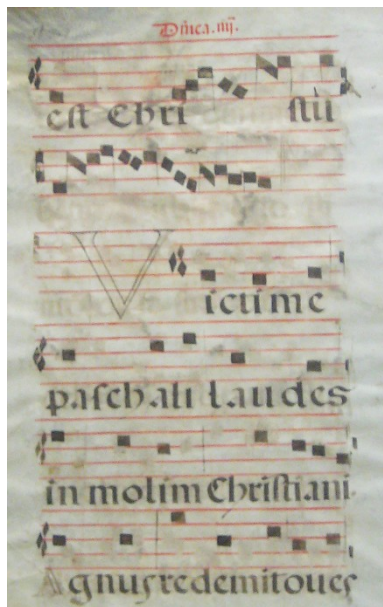 Dñica.iiij.
est Chri stū
Victime
paschali laudes
in molim Christiani.
Agnus redemit oues